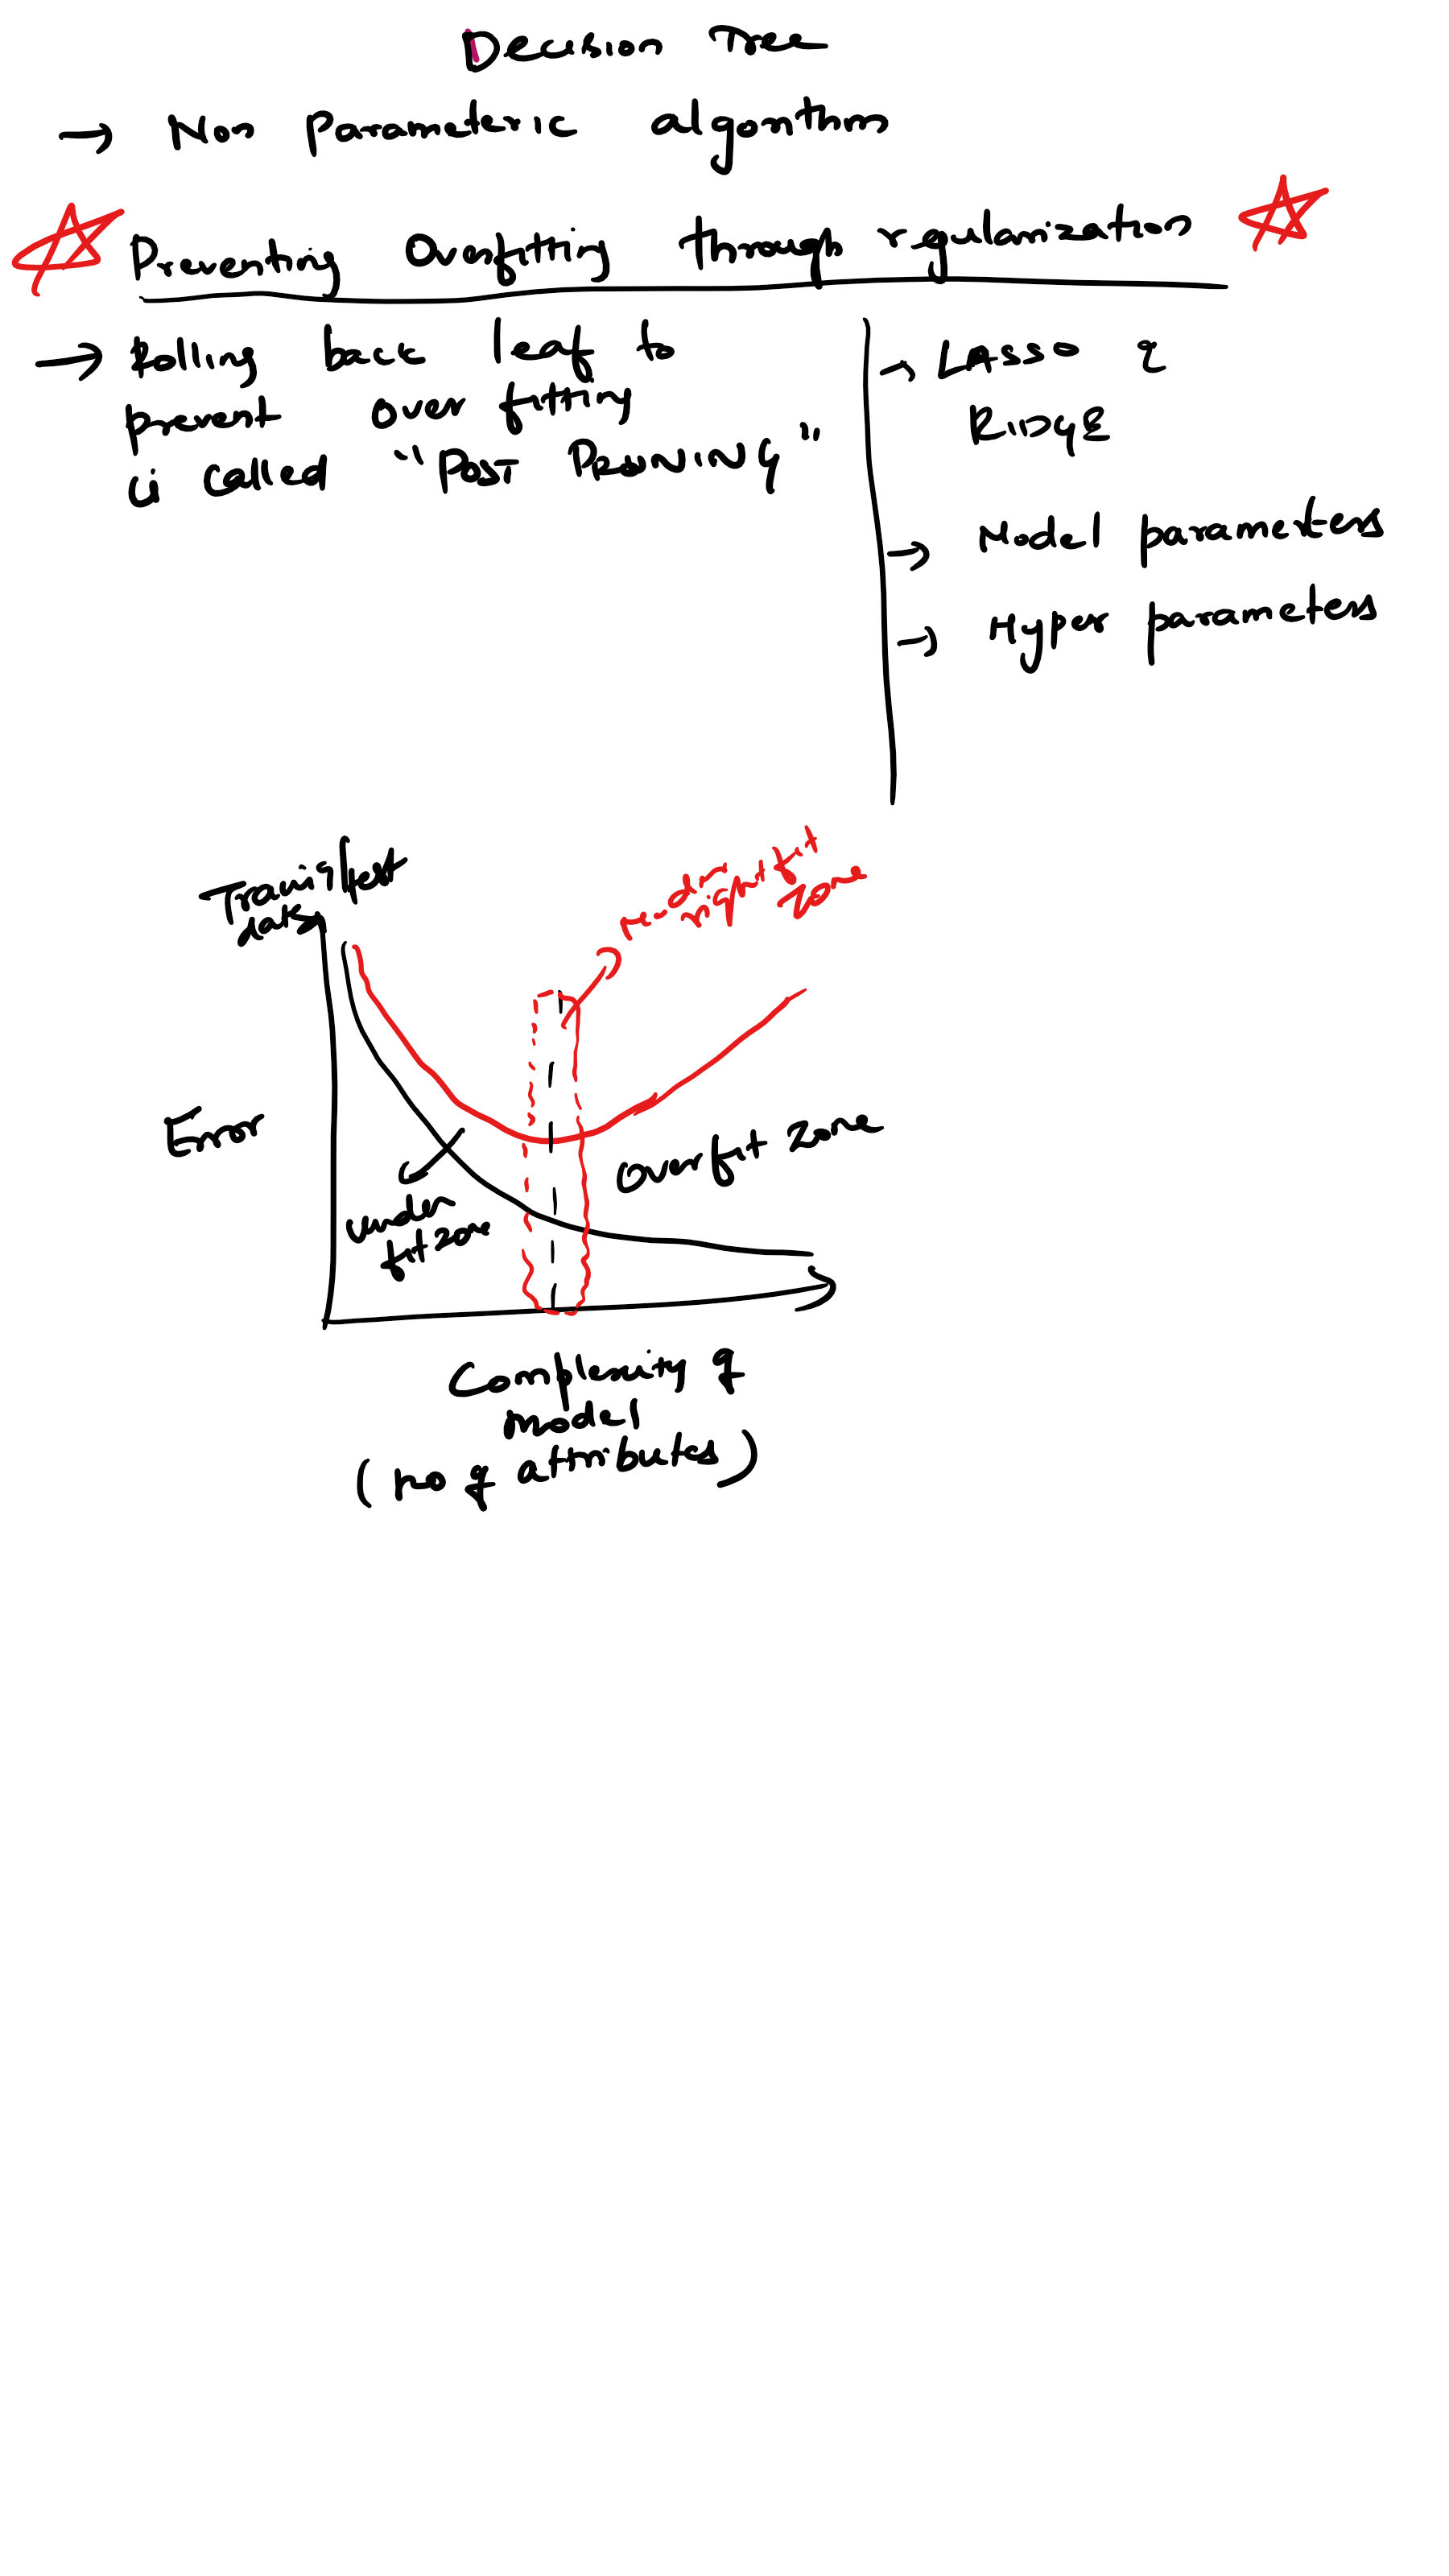 Decision Tree
→ Non Parameteric algorithm
Preventing Overfitting through regularization
→ Rolling back leaf to
prevent over fitting
is called "POST PRUNING"
→ LASSO &
RIDGE
→ Model parameters
→ Hyper parameters
Training/test
data
right fit
zone
Error
under
fit zone
Overfit zone
Complexity of
model
(no of attributes)